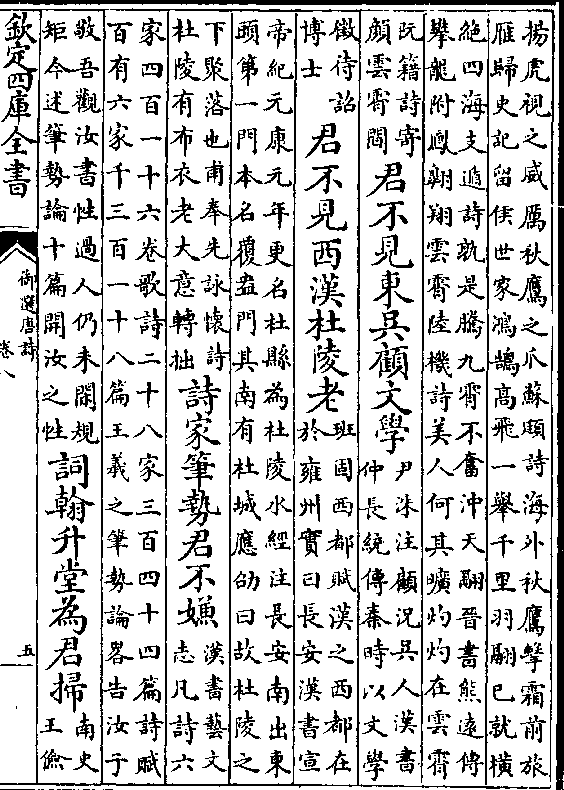 揚虎視之威厲秋鷹之爪蘇頲詩海外秋鷹擊霜前旅
雁歸史記留侯世家鴻鵠高飛一舉千里羽翮已就橫
絶四海支遁詩孰是騰九霄不奮沖天翮晉書熊遠傳
攀龍附鳳翺翔雲霄陸機詩美人何其曠灼灼在雲霄
阮籍詩寄
顔雲霄間
君不見東吳顧文學
尹洙注顧況吳人漢書
仲長統傳秦時以文學
徵待詔
博士
君不見西漢杜陵老
班固西都賦漢之西都在
於雍州實曰長安漢書宣
帝紀元康元年更名杜縣為杜陵水經注長安南出東
頭第一門本名覆盎門其南有杜城應劭曰故杜陵之
下聚落也甫奉先詠懷詩
杜陵有布衣老大意轉拙
詩家筆勢君不嫌
漢書藝文
志凡詩六
家四百一十六卷歌詩二十八家三百四十四篇詩賦
百有六家千三百一十八篇王羲之筆勢論畧告汝于
敬吾觀汝書性過人仍未閑規
矩今述筆勢論十篇開汝之性
詞翰升堂為君掃
南史
王儉
欽定四庫全書
御選唐詩
卷八
五